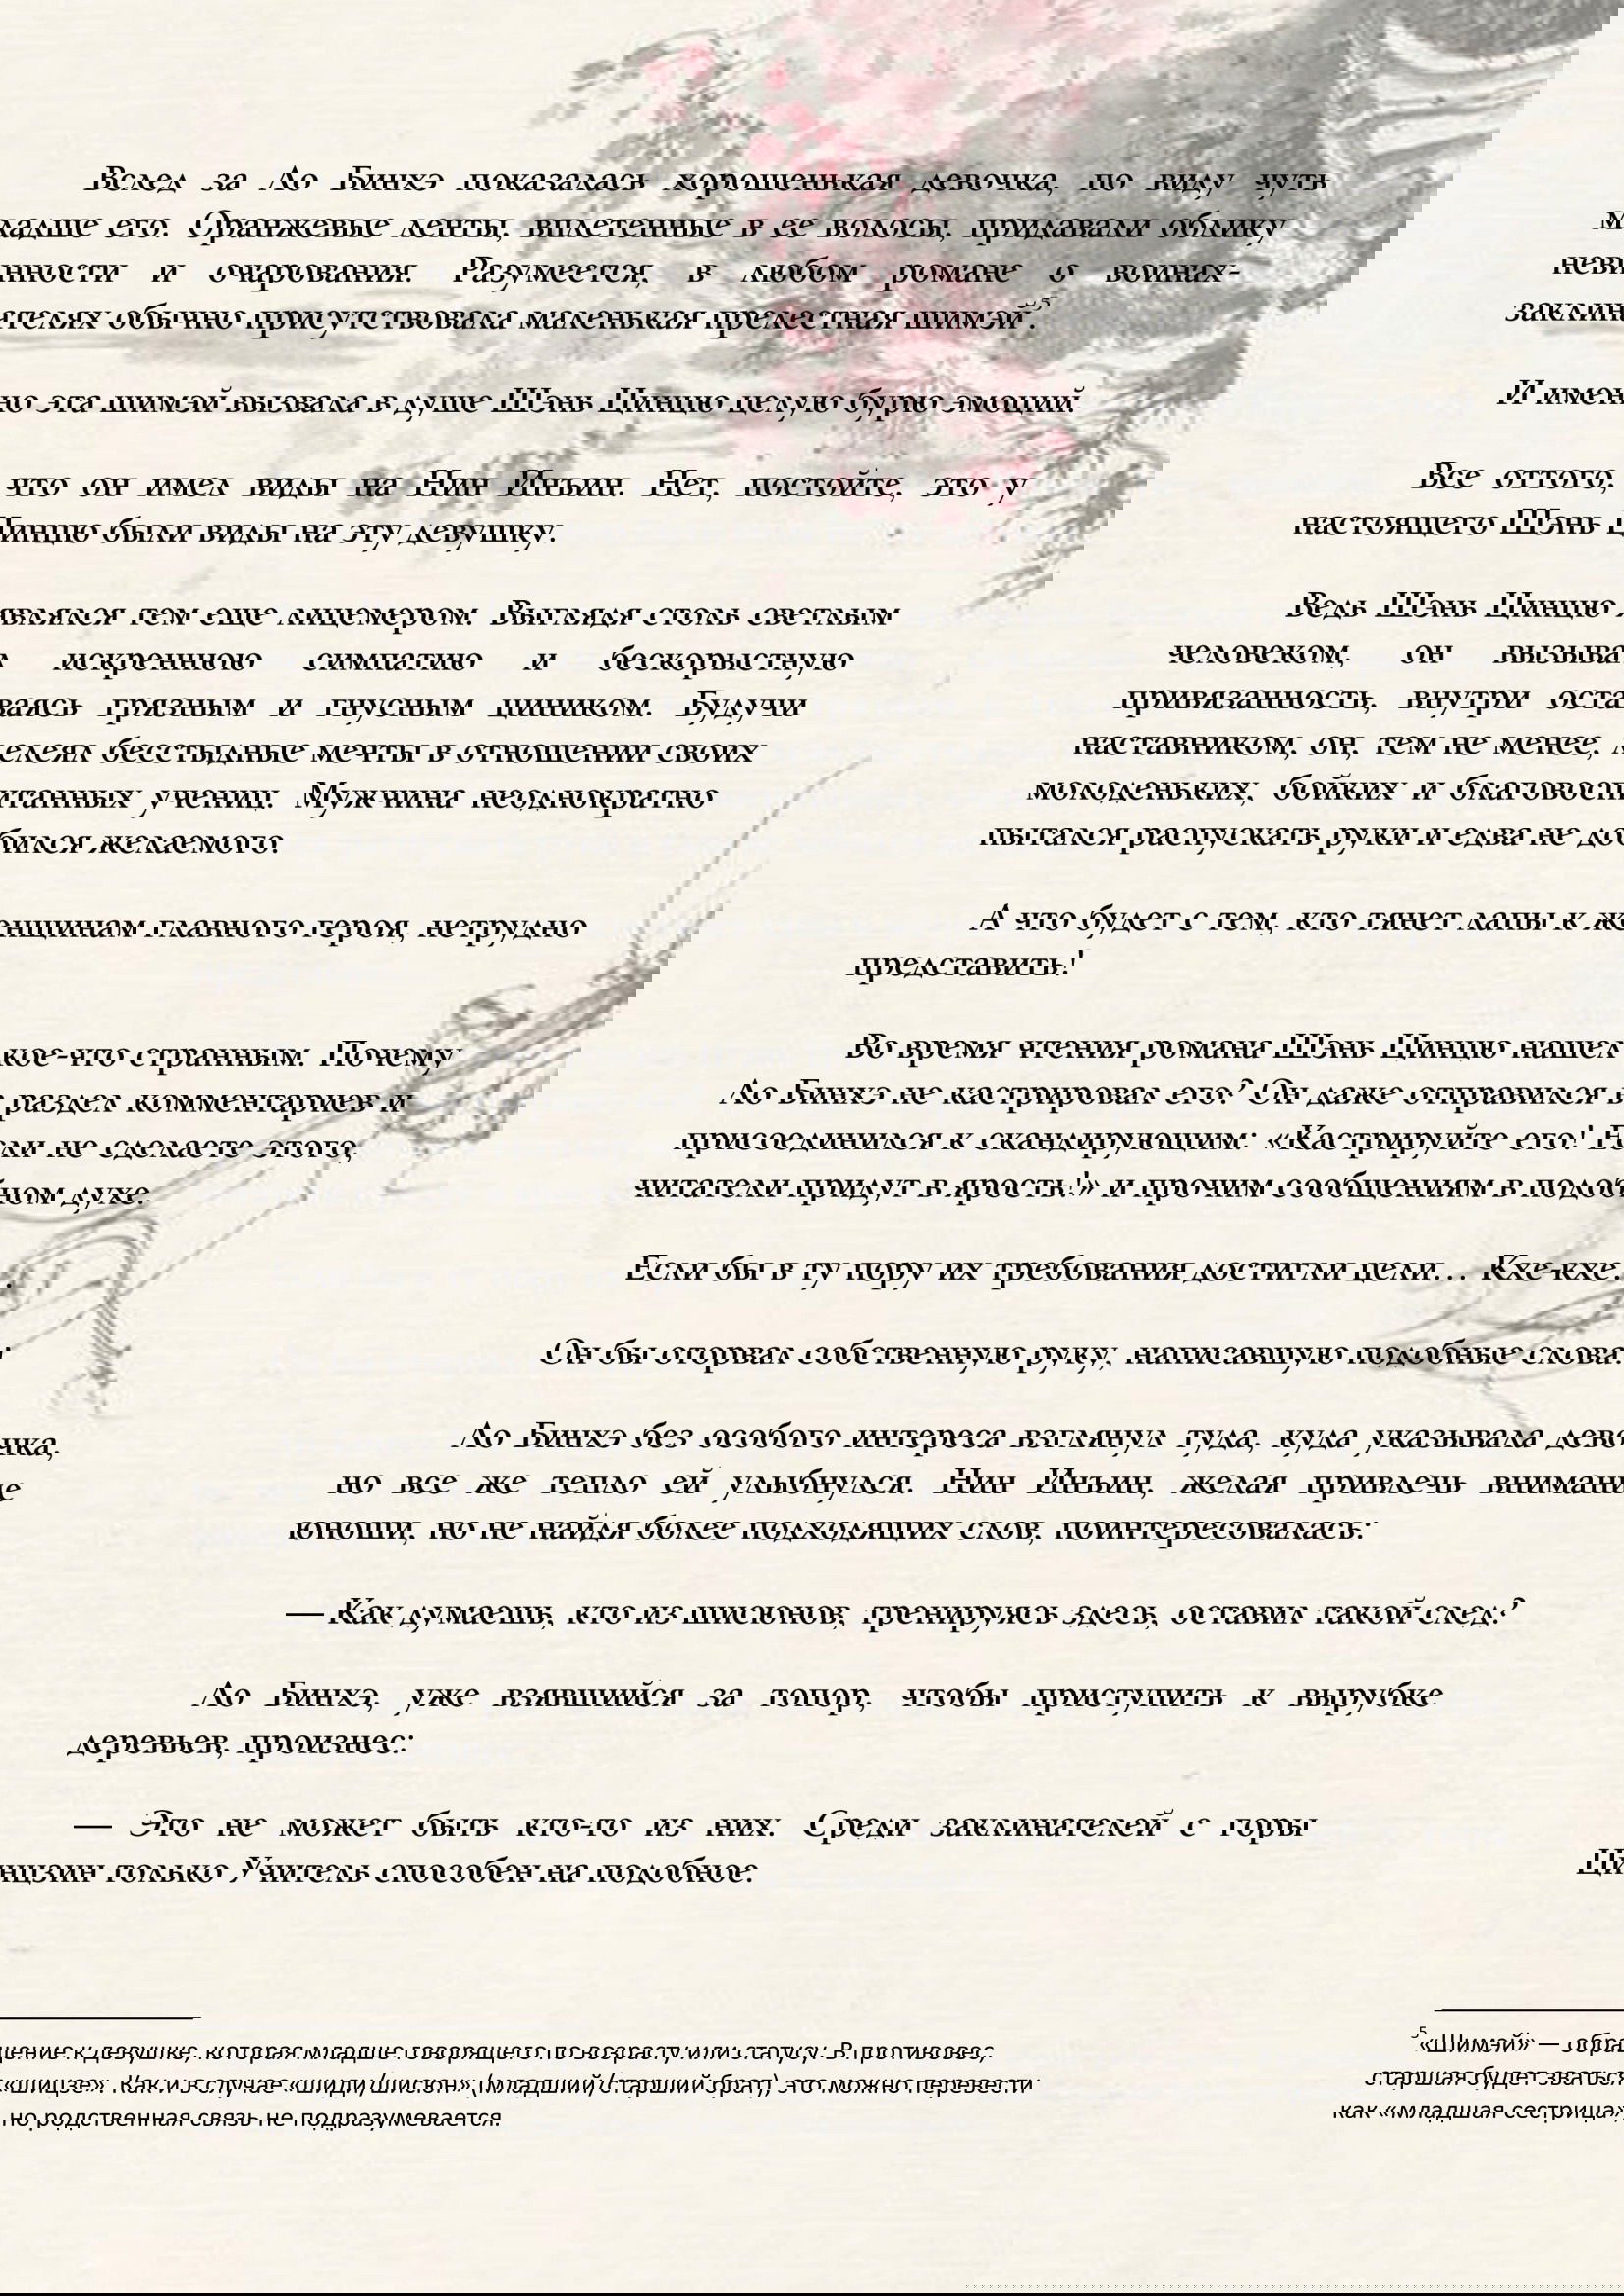 Вслед за Ло Бинхэ показалась хорошенькая девочка, по виду чуть
младше его. Оранжевые ленты, вплетенные в ее волосы, придавали облику
невинности и очарования. Разумеется, в любом романе о воинах-
заклинателях обычно присутствовала маленькая прелестная шимэй⁵.
И именно эта шимэй вызвала в душе Шэнь Цинцю целую бурю эмоций.
Все оттого, что он имел виды на Нин Инъин. Нет, постойте, это у
настоящего Шэнь Цинцю были виды на эту девушку.
Ведь Шэнь Цинцю являлся тем еще лицемером. Выглядя столь светлым
человеком, он вызывал искреннюю симпатию и бескорыстную
привязанность, внутри оставаясь грязным и гнусным циником. Будучи
наставником, он, тем не менее, лелеял бесстыдные мечты в отношении своих
молоденьких, бойких и благовоспитанных учениц. Мужчина неоднократно
пытался распускать руки и едва не добился желаемого.
А что будет с тем, кто тянет лапы к женщинам главного героя, нетрудно
представить!
Во время чтения романа Шэнь Цинцю нашел кое-что странным. Почему
Ло Бинхэ не кастрировал его? Он даже отправился в раздел комментариев и
присоединился к скандирующим: «Кастрируйте его! Если не сделаете этого,
читатели придут в ярость!» и прочим сообщениям в подобном духе.
Если бы в ту пору их требования достигли цели… Кхе-кхе.
Он бы оторвал собственную руку, написавшую подобные слова.
Ло Бинхэ без особого интереса взглянул туда, куда указывала девочка,
но все же тепло ей улыбнулся. Нин Инъин, желая привлечь внимание
юноши, но не найдя более подходящих слов, поинтересовалась:
— Как думаешь, кто из шисюнов, тренируясь здесь, оставил такой след?
Ло Бинхэ, уже взявшийся за топор, чтобы приступить к вырубке
деревьев, произнес:
— Это не может быть кто-то из них. Среди заклинателей с горы
Цинцзин только Учитель способен на подобное.
⁵ «Шимэй» — обращение к девушке, которая младше говорящего по возрасту или статусу. В противовес,
старшая будет зваться «шицзе». Как и в случае «шиди/шисюн» (младший/старший брат) это можно перевести
как «младшая сестрица», но родственная связь не подразумевается.